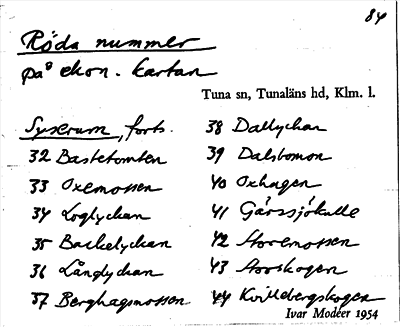 84
Röda nummer
på ekon. kartan
Tuna sn, Tunaläns hd, Klm. l.
Syserum, forts.
32 Bastetomten
33 Oxemossen
34 Loglyckan
35 Backelyckan
36 Långlyckan
37 Berghagsmossen
38 Dallyckan
39 Dalsbomon
40 Oxhagen
41 Gårssjökulle
42 Storemossen
43 Storskogen
44 Kvillebergskogen
Ivar Modéer 1954